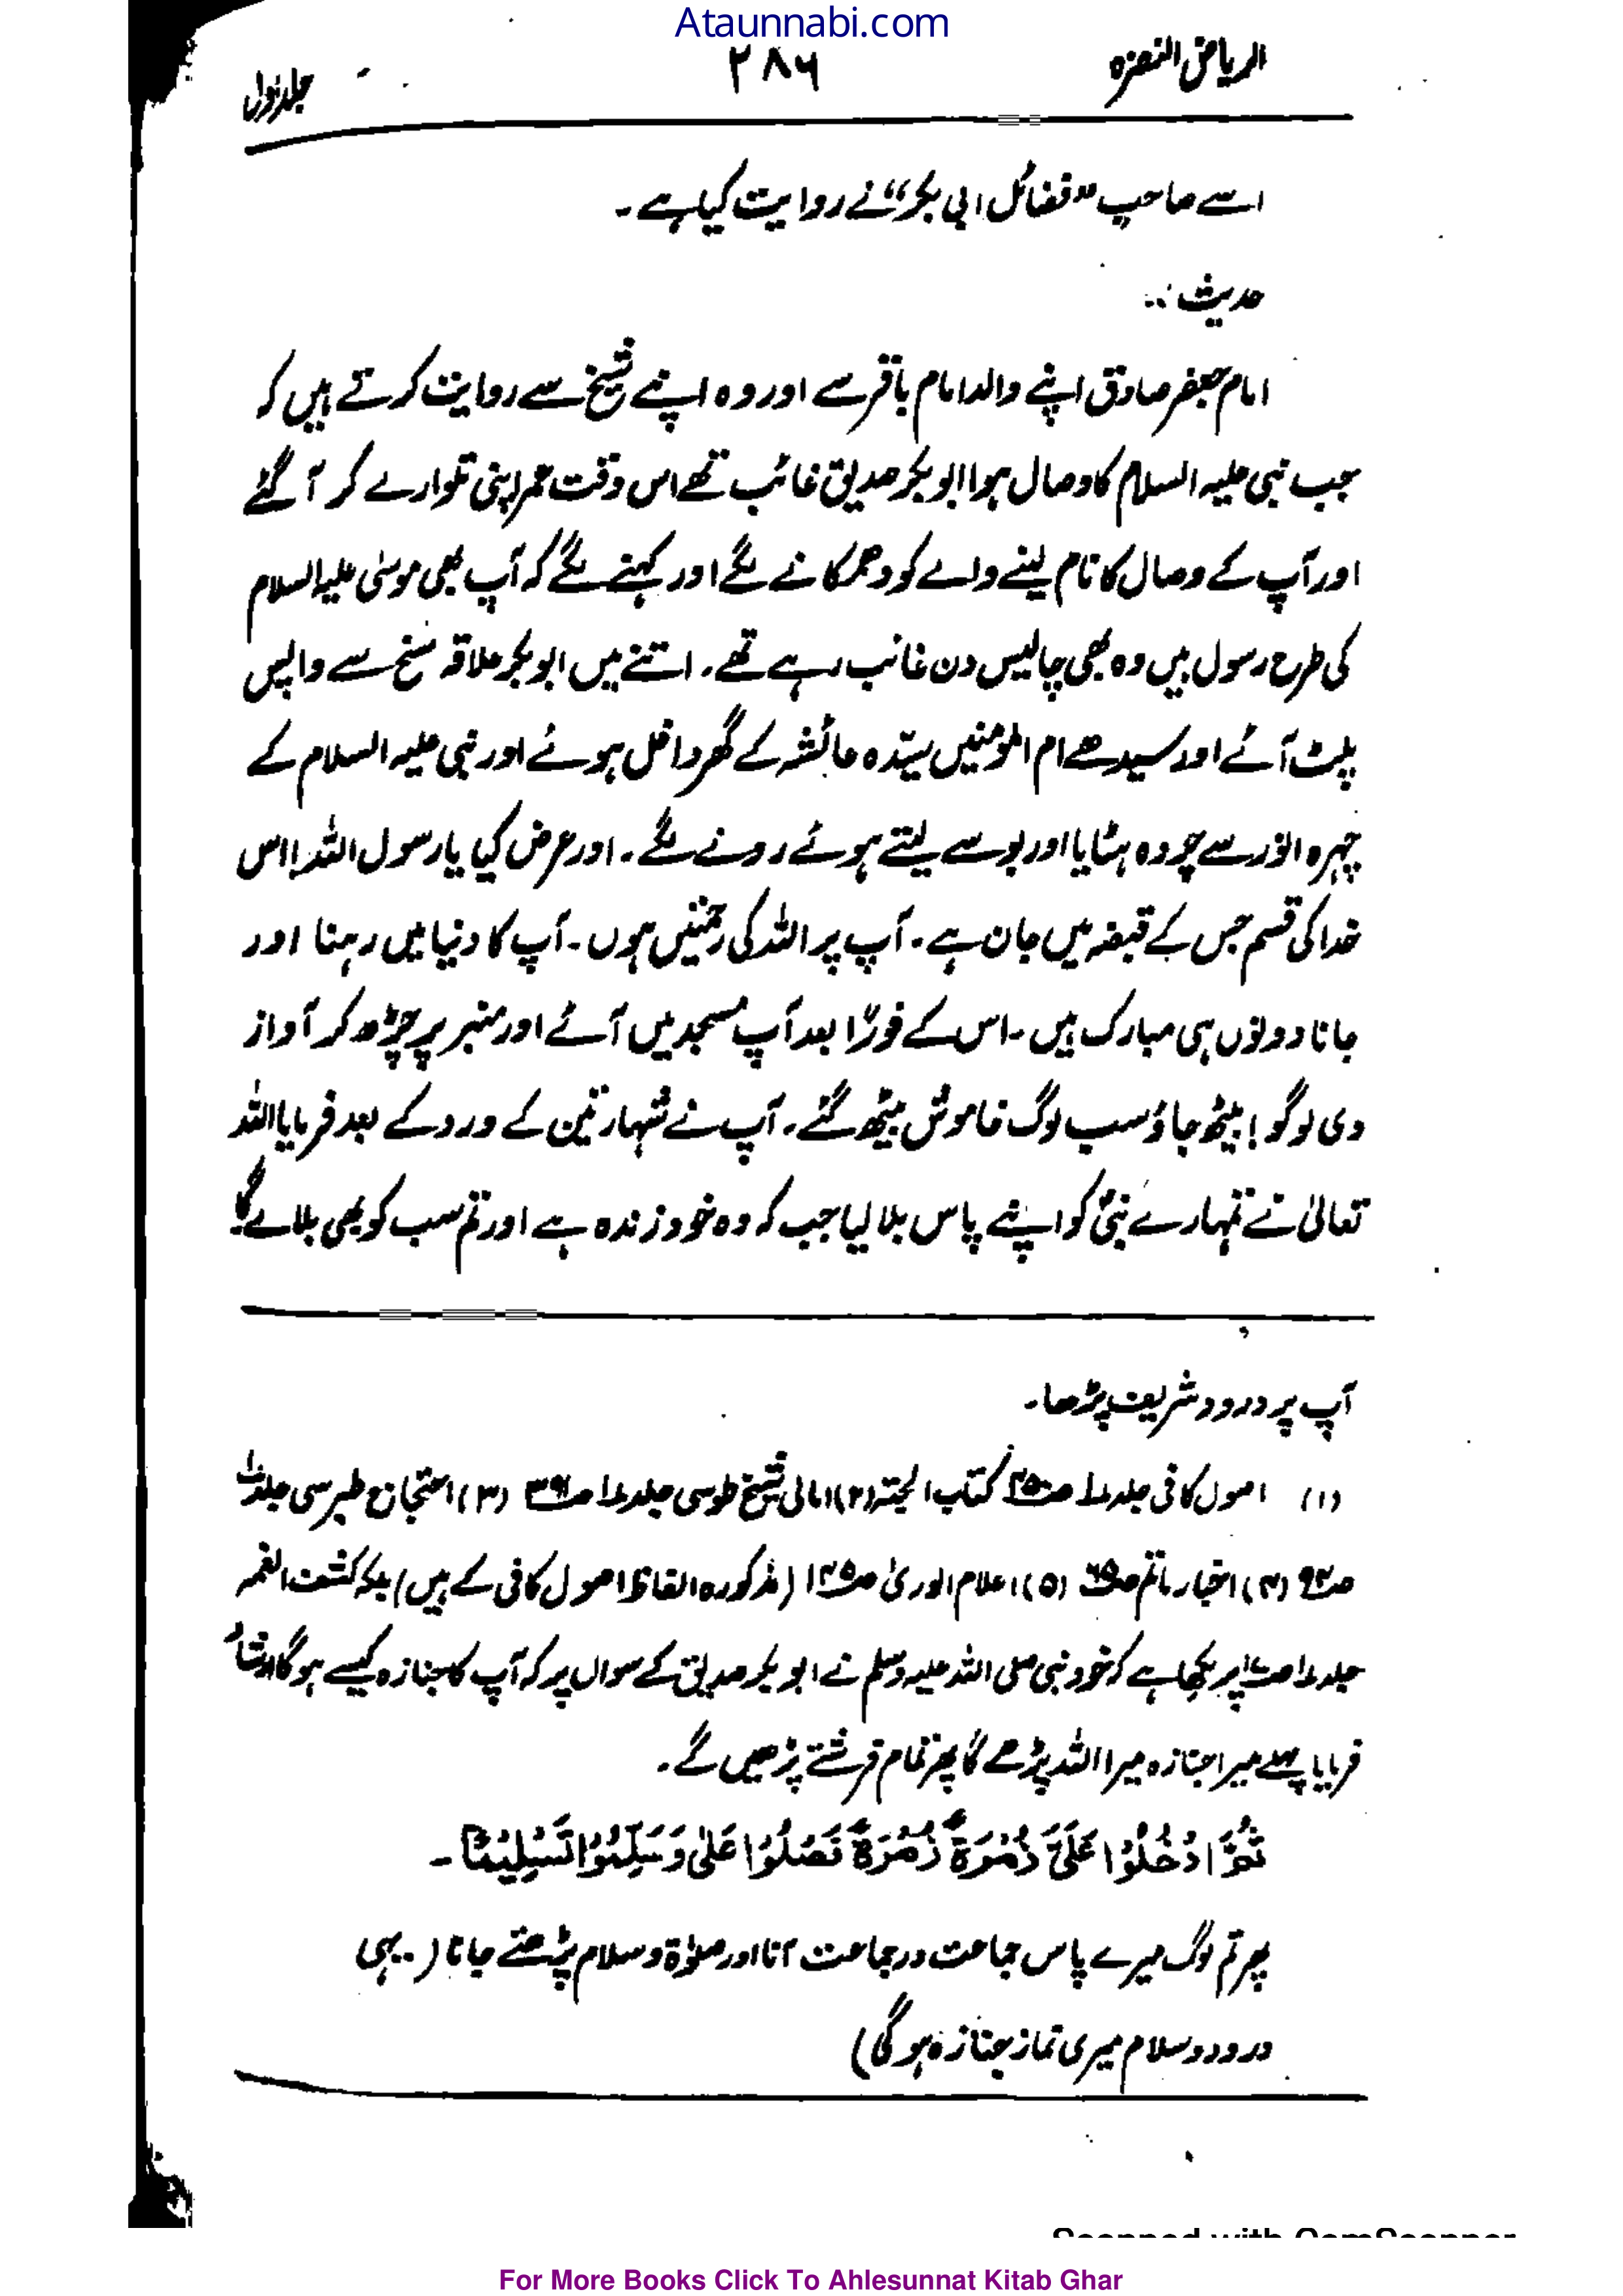 Ataunnabi.com
الریاض النضرہ ۲۸۶ جلد اول
اسے صاحب "فضائل ابی بکر" نے روایت کیا ہے۔
حدیث:۔
امام جعفر صادق اپنے والد امام باقر سے اور وہ اپنے شیخ سے روایت کرتے ہیں کہ
جب نبی علیہ السلام کا وصال ہوا ابوبکر صدیق غائب تھے اس وقت عمر اپنی تلوار لے کر آ گئے
اور آپ کے وصال کا نام لینے والے کو دھمکانے لگے اور کہنے لگے کہ آپ بھی موسیٰ علیہ السلام
کی طرح رسول ہیں وہ بھی چالیس دن غائب رہے تھے۔ اتنے میں ابوبکر علاقہ سنح سے واپس
پلٹ آئے اور سیدھے ام المؤمنین سیّدہ عائشہ کے گھر داخل ہوئے اور نبی علیہ السلام کے
چہرہ انور سے چردہ ہٹایا اور بوسے لیتے ہوئے رونے لگے۔ اور عرض کیا یا رسول اللہ! اس
خدا کی قسم جس کے قبضہ میں جان ہے۔ آپ پر اللہ کی رحمتیں ہوں۔ آپ کا دنیا میں رہنا اور
جانا دونوں ہی مبارک ہیں۔ اس کے فورًا بعد آپ مسجد میں آئے اور منبر پر چڑھ کر آواز
دی لوگو! بیٹھ جاؤ سب لوگ خاموش بیٹھ گئے۔ آپ نے شہادتین کے ورد کے بعد فرمایا اللہ
تعالیٰ نے تمہارے نبیؐ کو اپنے پاس بلا لیا جب کہ وہ خود زندہ ہے اور تم سب کو بھی بلائے گا۔
آپ پر درود شریف پڑھا۔
(۱) اصول کافی جلد ۱ کتاب الحجتہ (۲) امالی شیخ طوسی جلد ۱ (۳) احتجاج طبرسی جلد
ص ۹۲ (۴) اخبار ماتم (۵) اعلام الوریٰ (مذکورہ الفاظ اصول کافی کے ہیں) بلکہ کشف الغمہ
جلد ۱ پر لکھا ہے کہ خود نبی صلی اللہ علیہ وسلم نے ابوبکر صدیق کے سوال پر کہ آپ کا جنازہ کیسے ہوگا ارشاد
فرمایا پہلے میرا جنازہ میرا اللہ پڑھے گا پھر تمام فرشتے پڑھیں گے۔
ثُمَّ ادْخُلُوْا عَلَیَّ زُمْرَۃً زُمْرَۃً فَصَلُّوْا عَلَیَّ وَسَلِّمُوْا تَسْلِیْمًا۔
پھر تم لوگ میرے پاس جماعت در جماعت آنا اور صلوٰۃ و سلام پڑھتے جانا (یہی
درود و سلام میری نماز جنازہ ہو گی)
Scanned with CamScanner
For More Books Click To Ahlesunnat Kitab Ghar